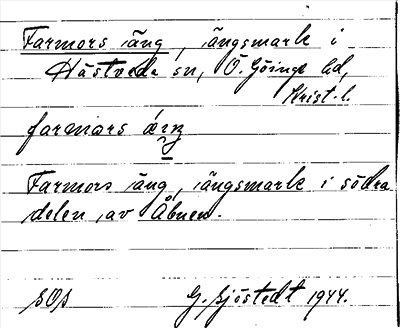 Farmors äng, ängsmark i
Hästveda sn, Ö. Göinge hd,
Krist. l.
farmors
Farmors äng, ängsmark i södra
delen av Åbuen.
G. Sjöstedt 1944.